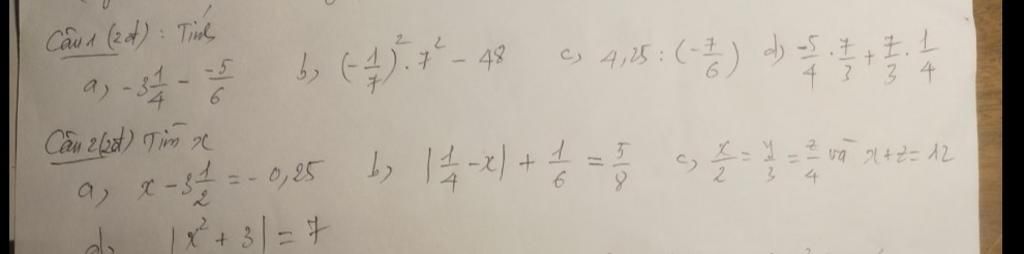 Câu 1 (2đ) : Tính
a, -3 1/4 - -5/6 b, (-1/7)² . 7² - 48 c, 4,25 : (-7/6) d, -5/4 . 7/3 + 7/3 . 1/4
Câu 2 (2đ) Tìm x
a, x - 3 1/2 = - 0,25 b, |1/4 - x| + 1/6 = 5/8 c, x/2 = y/3 = z/4 và x+z = 12
d, |x² + 3| = 7